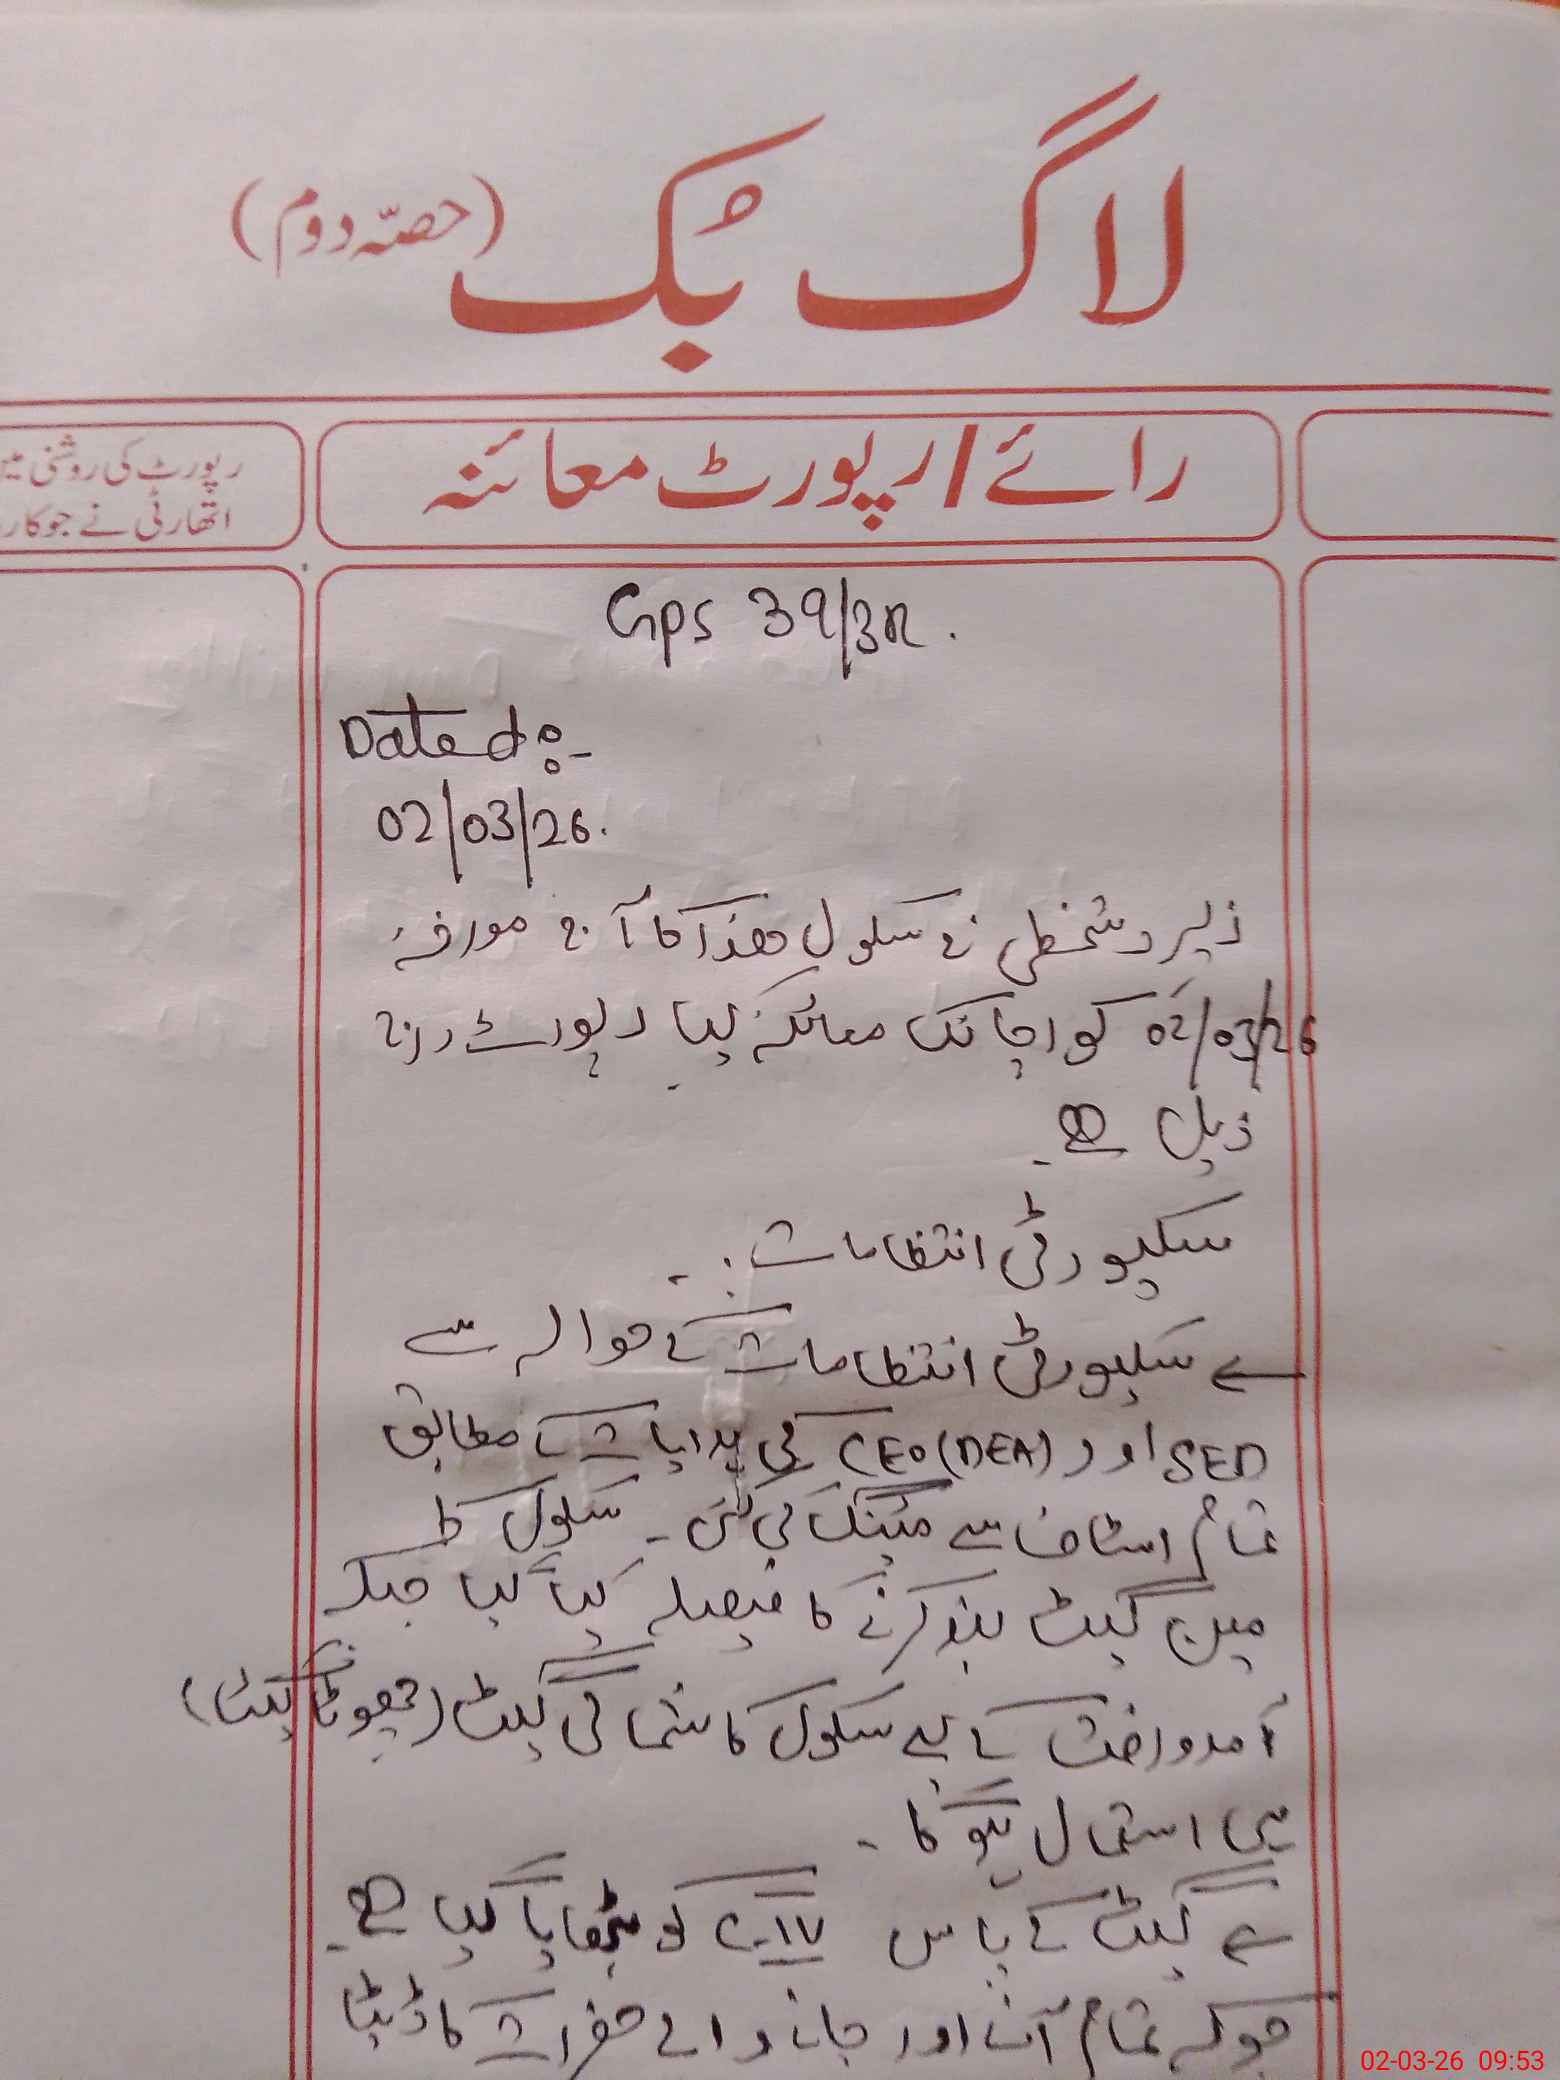 لاگ بک (حصّہ دوم)
رائے / رپورٹ معائنہ
رپورٹ کی روشنی میں
اتھارٹی نے جو کار
GPS 39/3R.
Dated:-
02/03/26.
زیر دستخطی نے سکول ھذا کا آج مورخہ
02/03/26 کو اچانک معائنہ کیا رپورٹ درج
ذیل ہے۔
سکیورٹی انتظامات:-
سکیورٹی انتظامات کے حوالہ سے
SED اور CEO(DEA) کی ہدایات کے مطابق
تمام اسٹاف سے میٹنگ کی گئی۔ سکول کا
مین گیٹ بند کرنے کا فیصلہ کیا گیا جبکہ
آمدورفت کے لیے سکول کا شمالی گیٹ (چھوٹا گیٹ)
ہی استمال ہوگا۔
گیٹ کے پاس کو بٹھایا گیا ہے۔
جو کہ تمام آنے اور جانے والے حضرات کا ڈیٹا
02-03-26 09:53